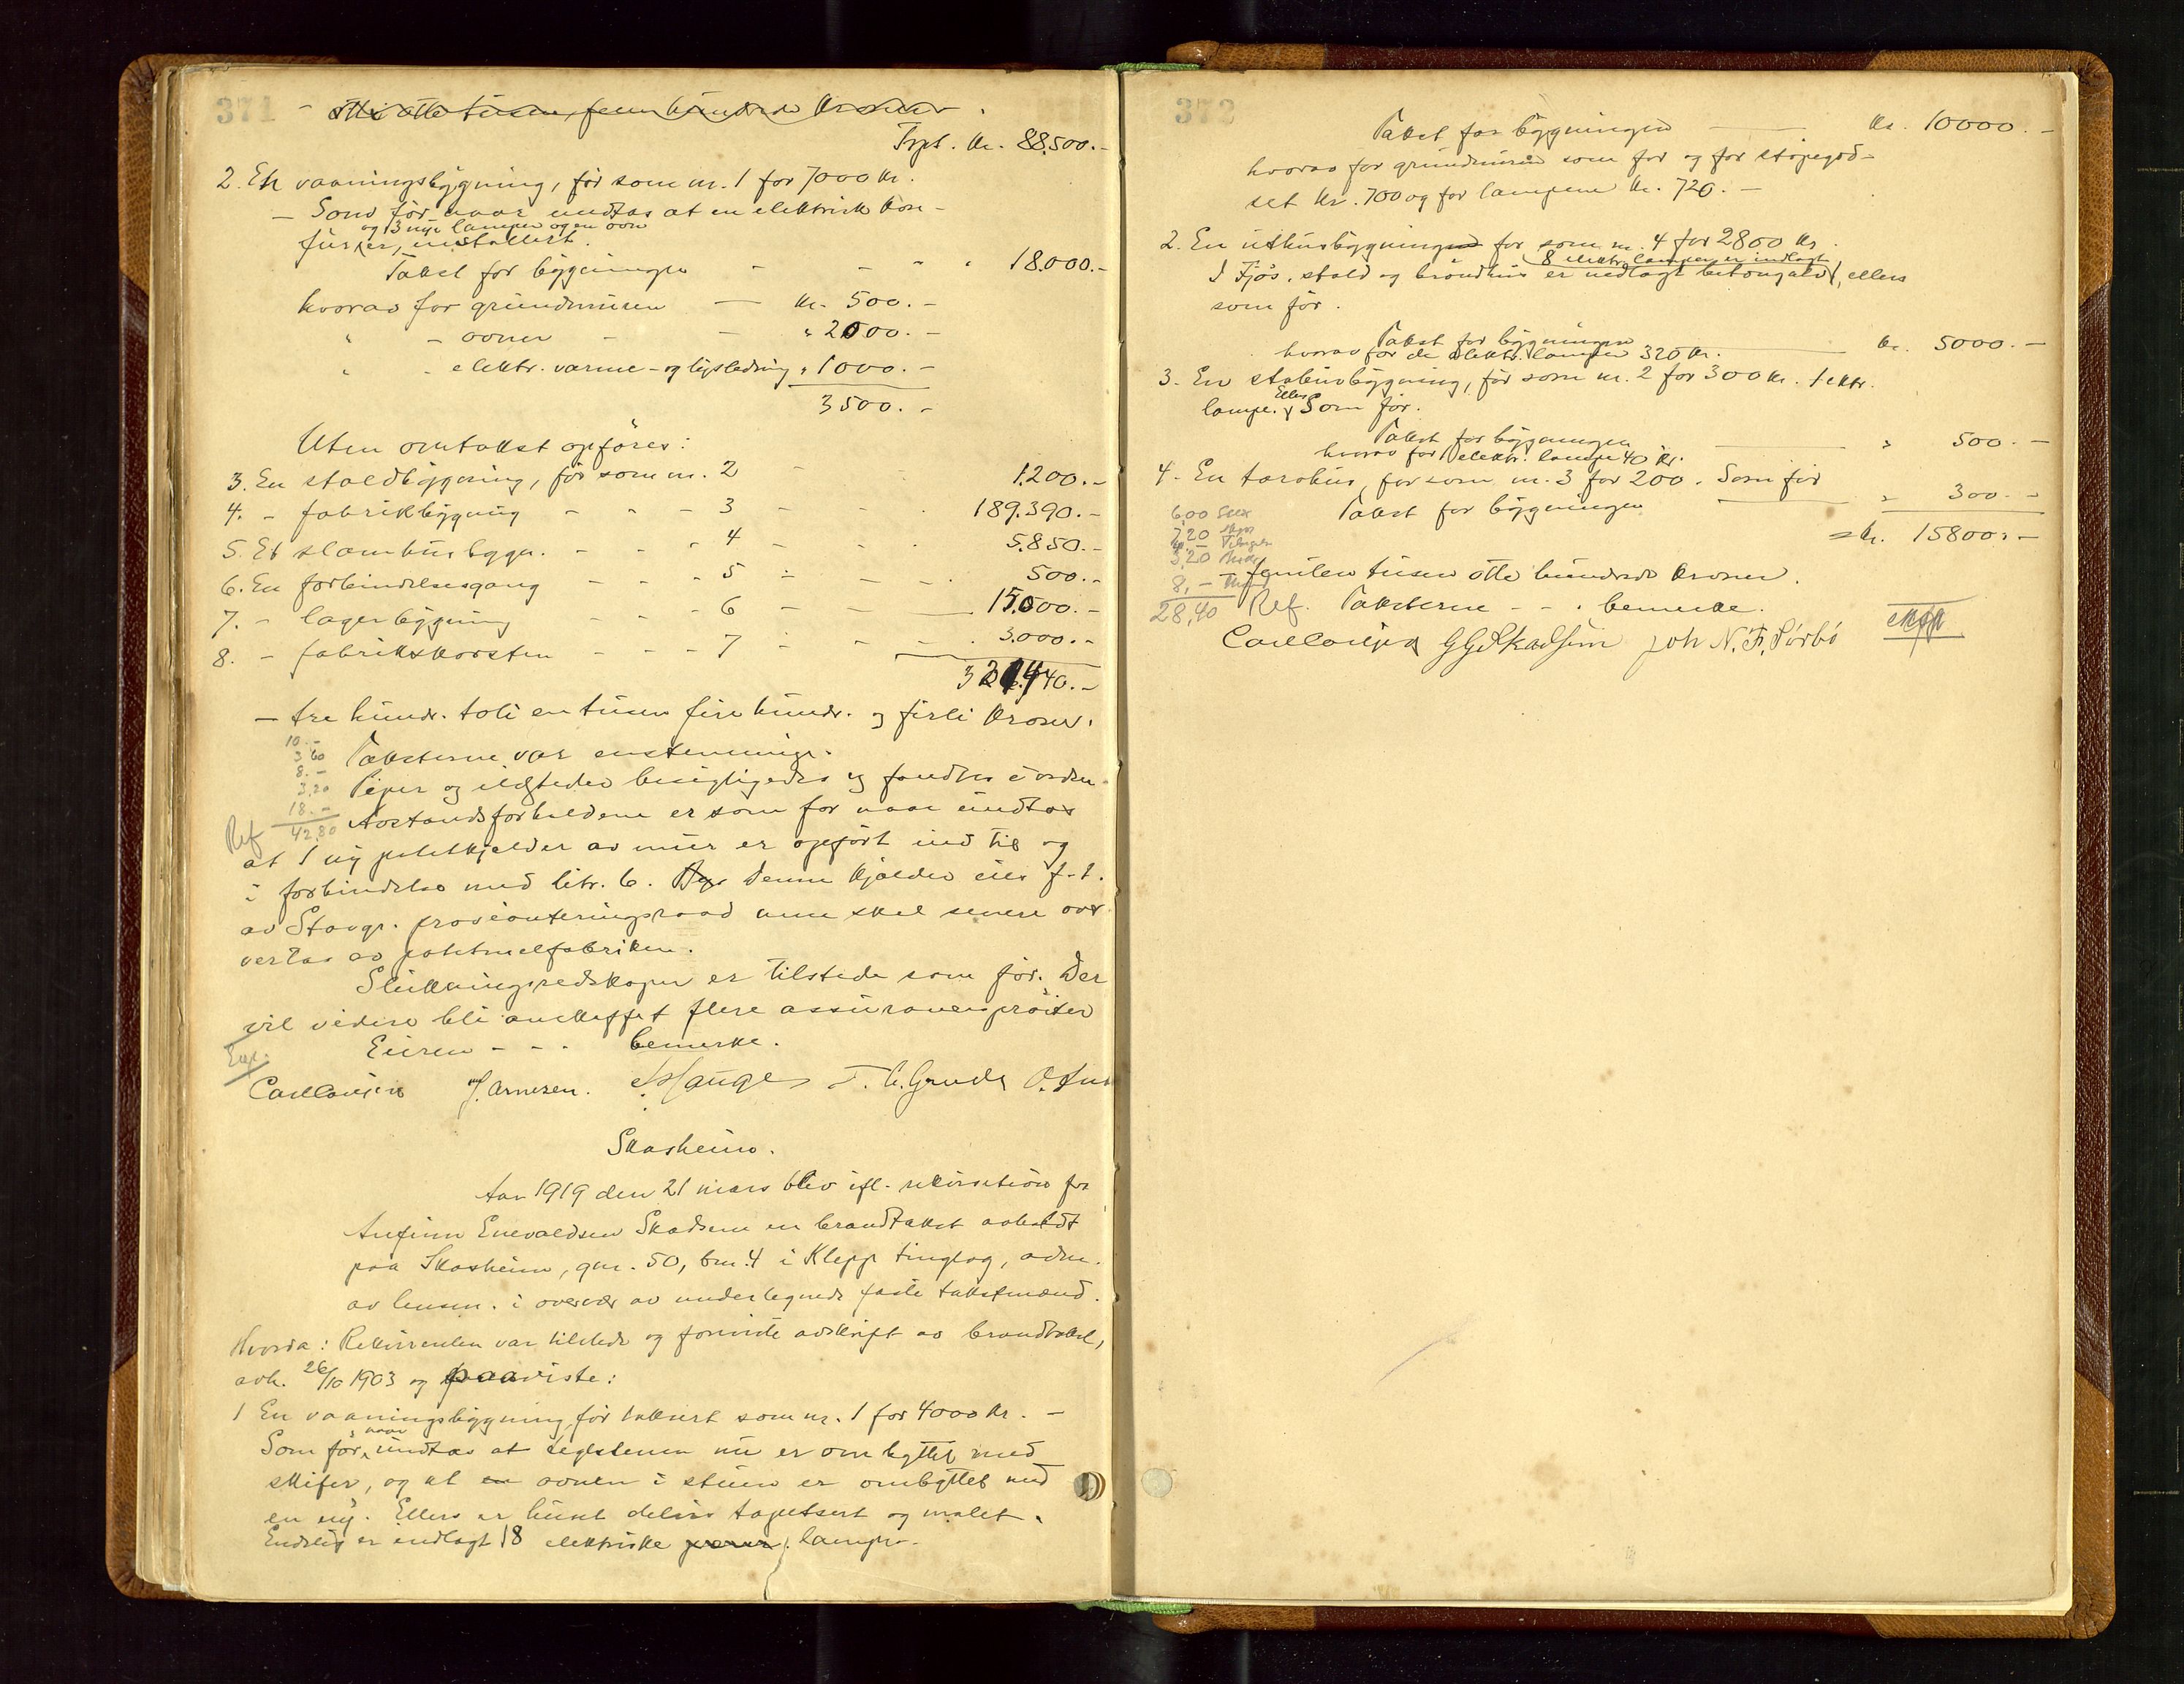 371
- otti otte tusen, fem hundrede kroner.
Trpt. kr. 88.500.-
2. En vaaningsbygning, før som nr. 1 for 7000 kr.
- Som før naar undtas at en elektrisk kom-
og 3 nye lamper og en ovn
fur er installert.
Takst for bygningen - - " " 18.000.-
hvorav for grundmuren - kr. 500.-
" - ovner - - " 2000.-
" - elektr. varme- og lysledning " 1000.-
3500.-
Uten omtakst opføres:
3. En staldbygning, før som nr. 2 - 1.200.-
4. - fabrikbygning - - - 3 - - . 189.390.-
5. Et slamhusbygn. - - - 4 - - . 5.850.-
6. En forbindelsesgang - - - 5 - - - 500.-
7. - lagerbygning - - - 6 - - 15.000.-
8. - fabrikskorsten - - - 7 - - - . 3.000.-
321.440.-
- tre hundr. toti en tusen fire hundr. og firti kroner.
10.-
3,60 Taksterne var enstemmige.
8.-
3,20 Piper og ildsteder besigtigedes og fandtes i orden.
18.-
Ref 42,80 Avstandsforholdene er som før naar undtas
at 1 ny potetkjelder av mur er opført ind til og
i forbindelse med litr. 6. Denne kjelder eies f.t.
av Stavgr. provianteringsraad men skal senere over
vertas av potetmelfabriken.
Slukningsredskaper er tilstede som før. Der
vil videre bli anskaffet flere assuransesprøiter
Exp. Eieren - - - bemerke.
Carl Lauritzen J. Arnesen. Hauge T. C. Grude O.
Skasheim.
Aar 1919 den 21 mars blev efl. rekvisition fra
Anfinn Enevaldsen Skadsem en brandtakst avholdt
paa Skasheim, gnr. 50, bnr. 4 i Klepp tinglag, adm.
av lensm. i overvær av undertegnede faste takstmænd.
Hvorda: Rekvirenten var tilstede og foreviste avskrift av brandtakst,
avh. 26/10 1903 og paaviste:
1 En vaaningsbygning, før taksert som nr. 1 for 4000 kr. -
naar
Som før, undtas at teglstenen nu er ombyttet med
skifer, og at en ovnen i stuen er ombyttet med
en ny. Ellers er huset delvis tapetsert og malet.
Endelig er indlagt 18 elektriske lamper.
372
Takst for bygningen - kr. 10000.-
hvorav for grundmuren som før og for støpegod-
set kr. 700 og for lampene kr. 720.-
2. En uthusbygning før som nr. 4 for 2800 kr.
8 elektr. lamper er indlagt
I fjøs, stald og brøndhus er nedlagt betongulv, ellers
som før.
Takst for bygningen - kr. 5000.-
hvorav for de elektr. lamper 320 kr.
3. En stabursbygning, før som nr. 2 for 300 kr. 1 elktr.
Ellers
lampe. Som før.
Takst for bygningen - " 500.-
hvorav for 1 elektr. lampe 40 kr.
4. En tørvhus, før som nr. 3 for 200. Som før
Takst for bygningen - " 300.-
= kr. 15800.-
6,00
7,20
4.-
3,20
8,-
- femten tusen otte hundrede kroner.
28,40 Ref. Taksterne - - . bemerke.
ekspp
Carl Lauritzen G G Skadsem Joh N. F. Sørbø